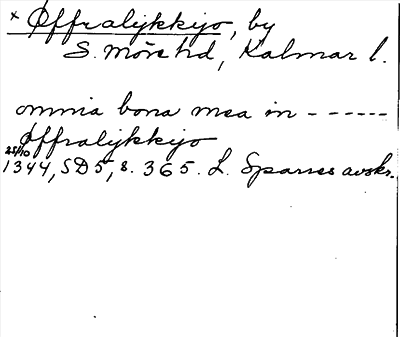 × Øffralykkijo, by
S. Möre hd, Kalmar l.
omnia bona mea in - - - - - -
Øffralykkijo
25/10
1344, SD 5, s. 365. L. Sparres avskr.